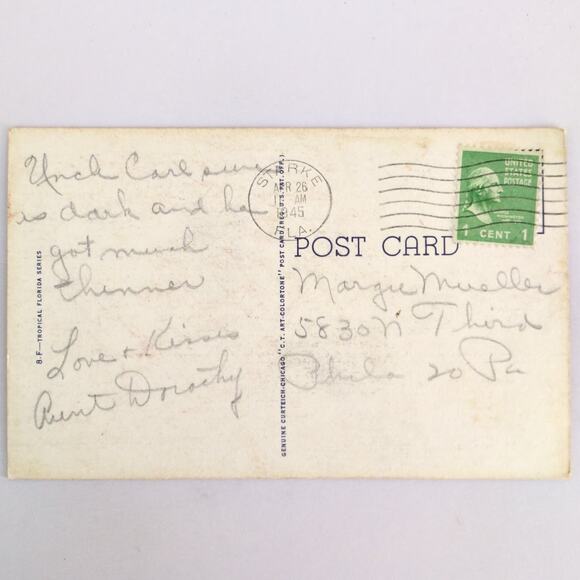 Uncle Carl sure
is dark and has
got much
thinner
Love + Kisses
Aunt Dorothy
8-F—TROPICAL FLORIDA SERIES
GENUINE CURTEICH-CHICAGO "C.T. ART-COLORTONE" POST CARD (REG. U.S. PAT. OFF.)
STARKE
APR 26
AM
1945
FLA.
UNITED
STATES
POSTAGE
WASHINGTON
1 CENT 1
POST CARD
Margie Mueller
5830 N Third
Phila 20 Pa